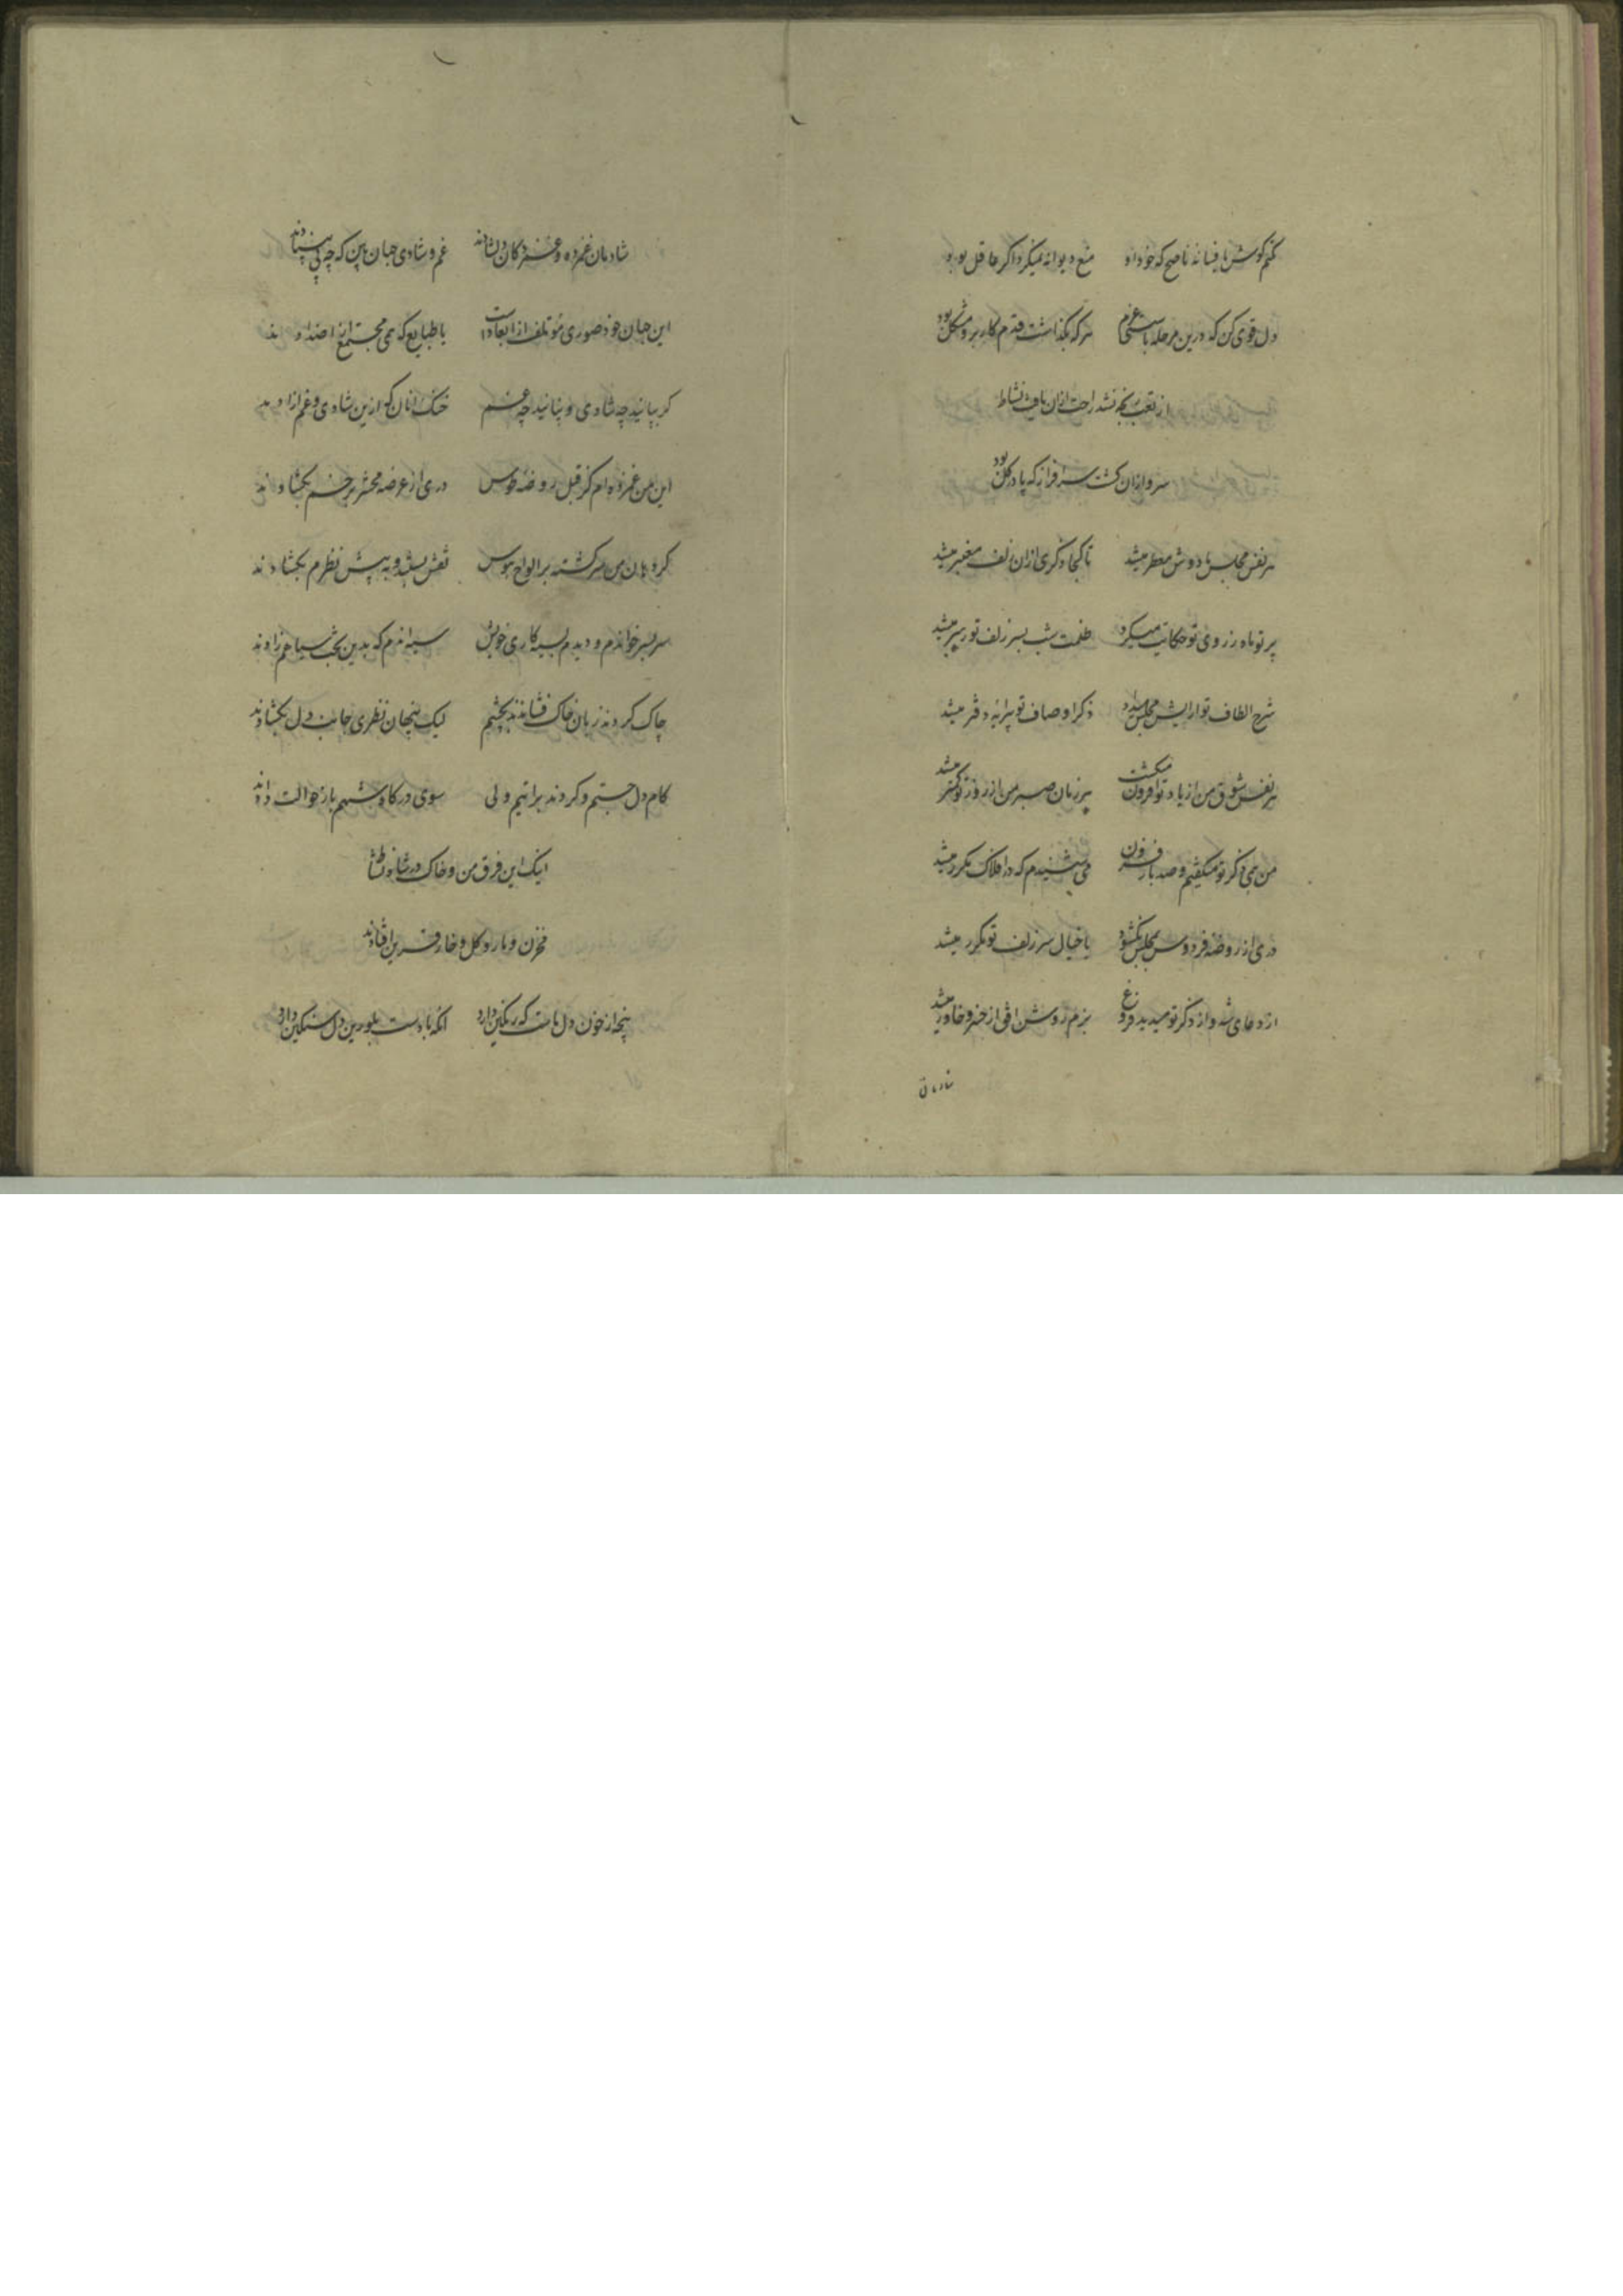 نکنم گوش بافسانه ناصح که خود او منع دیوانه نمیکرد اگر عاقل بود
دل قوی کن که درین مرحله با سستی عزم هر که بگذاشت قدم کار برو مشکل بود
از تعب رنجه نشد راحت ازان یافت نشاط
سرو ازان گشت سرافراز که پا در گل بود
هر نفس مجلس ما دوش معطر میشد تا کجا ذکری ازان زلف معنبر میشد
پرتو ماه ز روی تو حکایت میکرد ظلمت شب بسر زلف تو رهبر میشد
شرح الطاف تو ارایش مجلس میداد ذکر اوصاف تو پیرایه دفتر میشد
هر نفس شوق من از یاد تو افزون میگشت هر زمان صبر من از روز تو کمتر میشد
من همی ذکر تو میگفتم و صد بار فزون می شنیدم که در افلاک مکرر میشد
دری از روضه فردوس بمجلس بگشود یا خیال سر زلف تو مکرر میشد
از دعای شه و از ذکر تو میدید فروغ بزم روشن افق از خسرو خاور میشد
شادمان
شادمان غمزده و غمزدگان دلشادند غم و شادی جهان بین که چه بی بنیادند
این جهان خود صوری مؤتلف از ابعاد است با طبایع که همی مجتمع از اضدادند
گر بپایند چه شادی و نپایند چه غم خنک انان که ازین شادی و غم ازادند
این من غمزده ام کز قبل روضه طوس دری از عرصه محشر برخم بگشادند
گرد هان من سرگشته بر الواح هوس نقش بستند و به پیش نظرم بگشادند
سر بسر خواندم و دیدم بسیه کاری خویش سیه اندم که بدین بخت سیاهم زادند
چاک کردند زبان خاک فشاندند بچشم لیک پنهان نظری جانب دل بگشادند
کام دل جستم و کردند براتیم ولی سوی درگاه شهم باز حوالت دادند
اینک این فرق من و خاک در شاه
مخزن و مار و گل و خار قرین افتادند
پنجه از خون دل ماست که رنگین دارد انکه با دست بلورین دل سنگین دارد